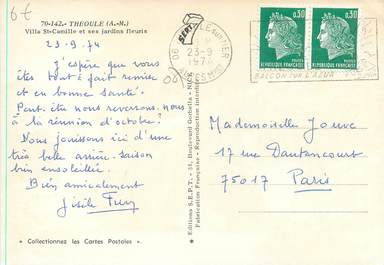 6€
70-142.- THEOULE (A.-M.)
Villa St-Camille et ses jardins fleuris
23-9.74
J'espère que vous
êtes tout à fait remise
et en bonne santé.
Peut-être nous reverrons-nous
à la réunion d'octobre?
Nous jouissons ici d'une
très belle arrière-saison
bien ensoleillée.
Bien amicalement
Gisèle
« Collectionnez les Cartes Postales »
Editions S.E.P.T. - 54, Boulevard Gorbella - NICE
Fabrication Française - Reproduction interdite
SEPT
23-9
1974
06
BALCON SUR L'AZUR
0,30
REPUBLIQUE FRANÇAISE
0,30
REPUBLIQUE FRANÇAISE
Mademoiselle Jouve
17 rue Dautancourt
75017 Paris